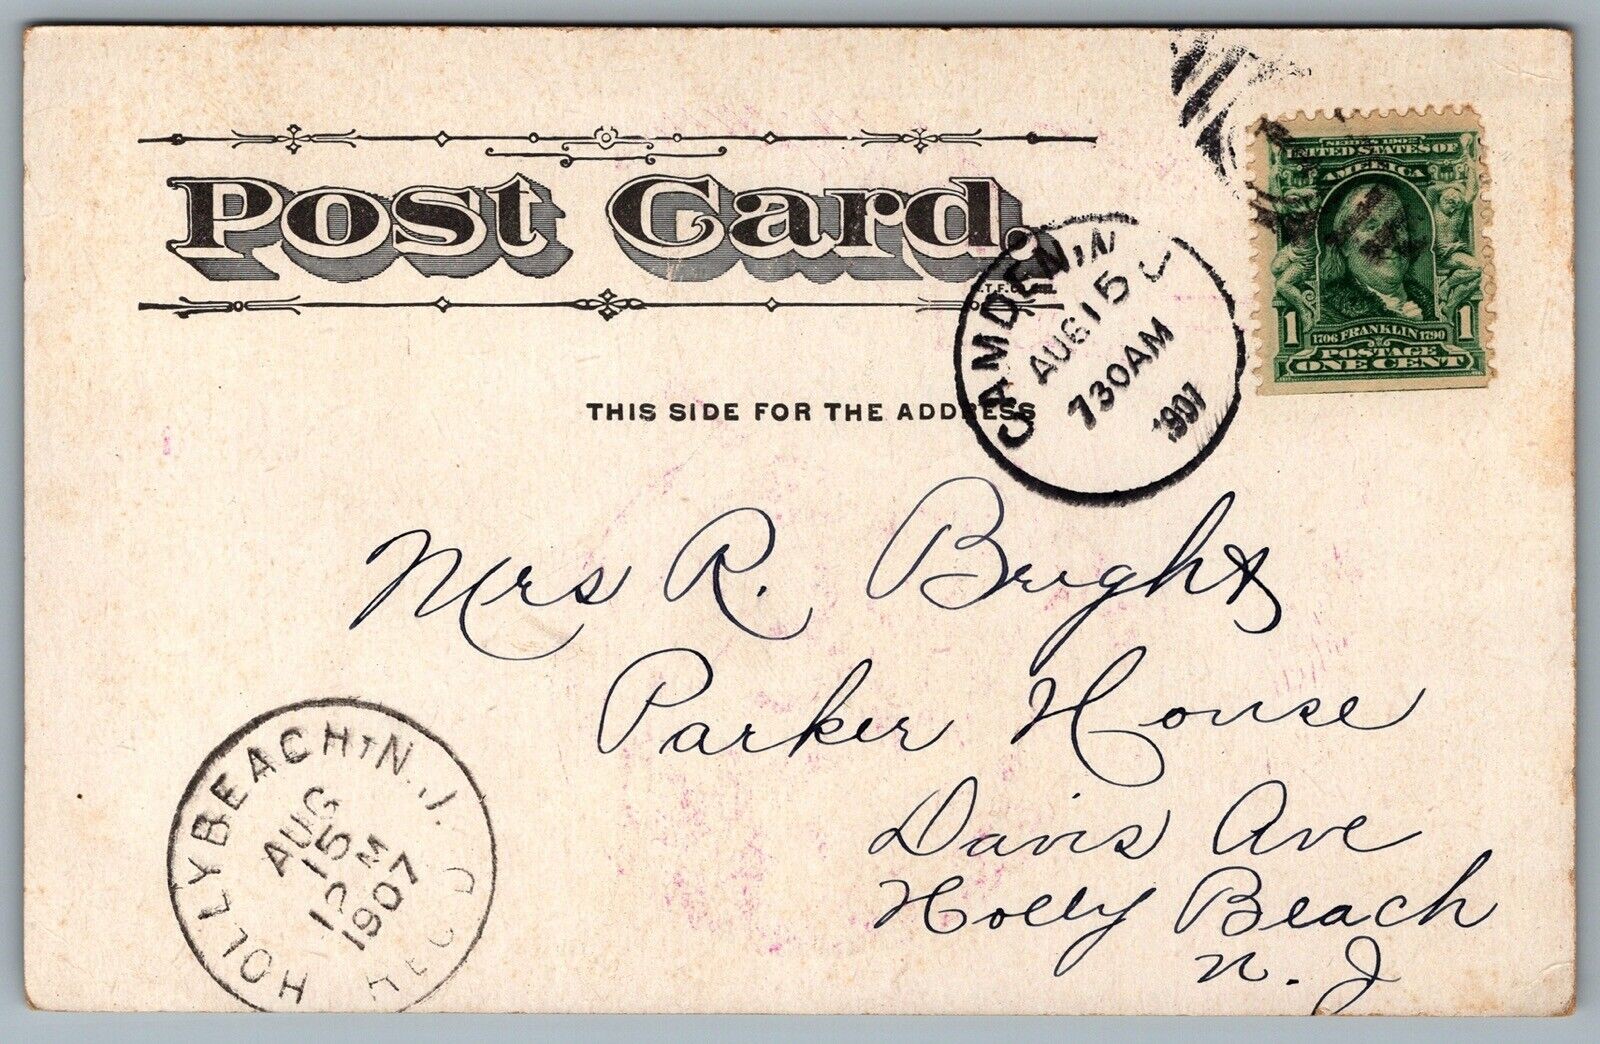 Post Card.
THIS SIDE FOR THE ADDRESS
CAMDEN, N
AUG 15
730 AM
1907
SERIES 1902
UNITED STATES OF
AMERICA
1706 FRANKLIN 1790
1 1
POSTAGE
ONE CENT
Mrs R. Bright
Parker House
Davis Ave
Holly Beach
N. J
HOLLYBEACH, N.J.
AUG
15
M
1907
REC'D